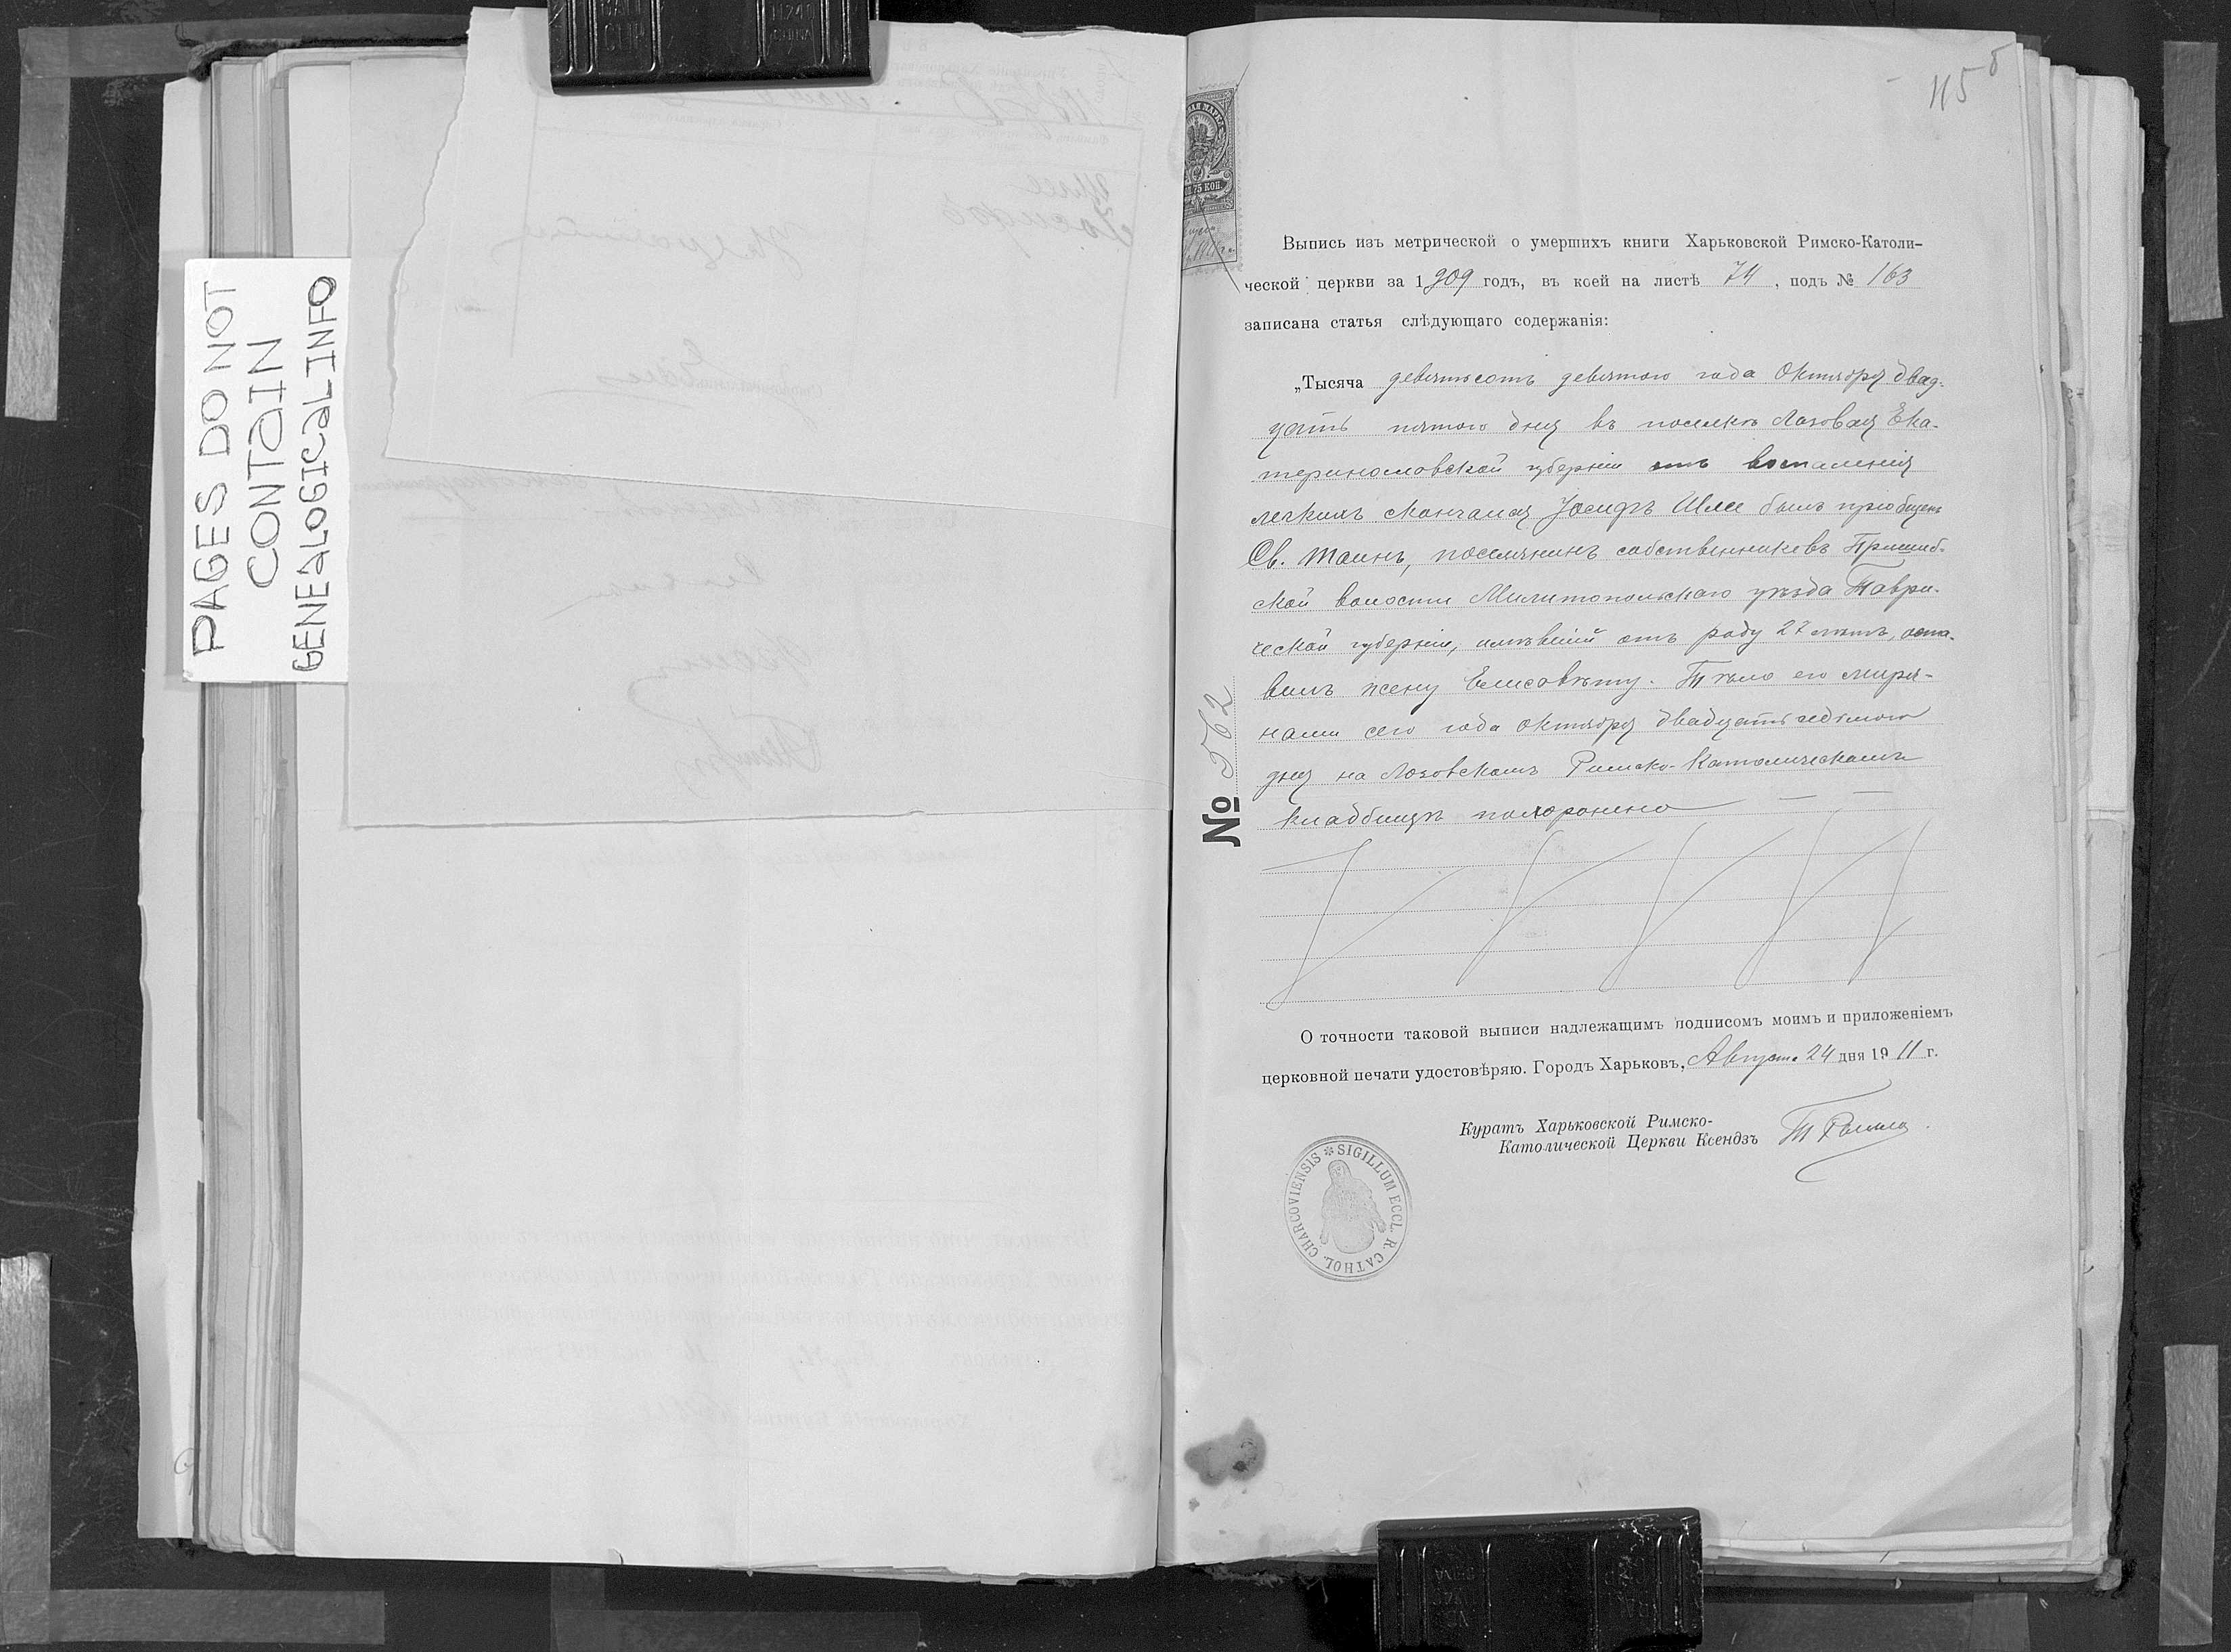 PAGES DO NOT
CONTAIN
GENEALOGICAL INFO
115
75 КОП.
Выпись изъ метрической о умершихъ книги Харьковской Римско-Католи-
ческой церкви за 1909 годъ, въ коей на листѣ 74, подъ № 163
записана статья слѣдующаго содержанія:
„Тысяча девятьсотъ девятого года Октября двад-
цать пятого дня въ поселкѣ Лозовая Ека-
теринославской губерніи отъ воспаленія
легкихъ скончался Іосифъ Шлее былъ пріобщенъ
Св. Таинъ, поселянинъ собственниковъ Пришиб-
ской волости Мелитопольскаго уѣзда Таври-
ческой губерніи, имѣвшій отъ роду 27 лѣтъ, оста-
вилъ жену Елисавету. Тѣло его миря-
нами сего года октября двадцать седьмого
дня на Лозовскомъ Римско-Католическомъ
кладбищѣ похоронено
№ 562
О точности таковой выписи надлежащимъ подписомъ моимъ и приложеніемъ
церковной печати удостовѣряю. Городъ Харьковъ, Августа 24 дня 1911 г.
Куратъ Харьковской Римско-
Католической Церкви Ксендзъ
SIGILLUM ECCL. R. CATHOL. CHARCOVIENSIS